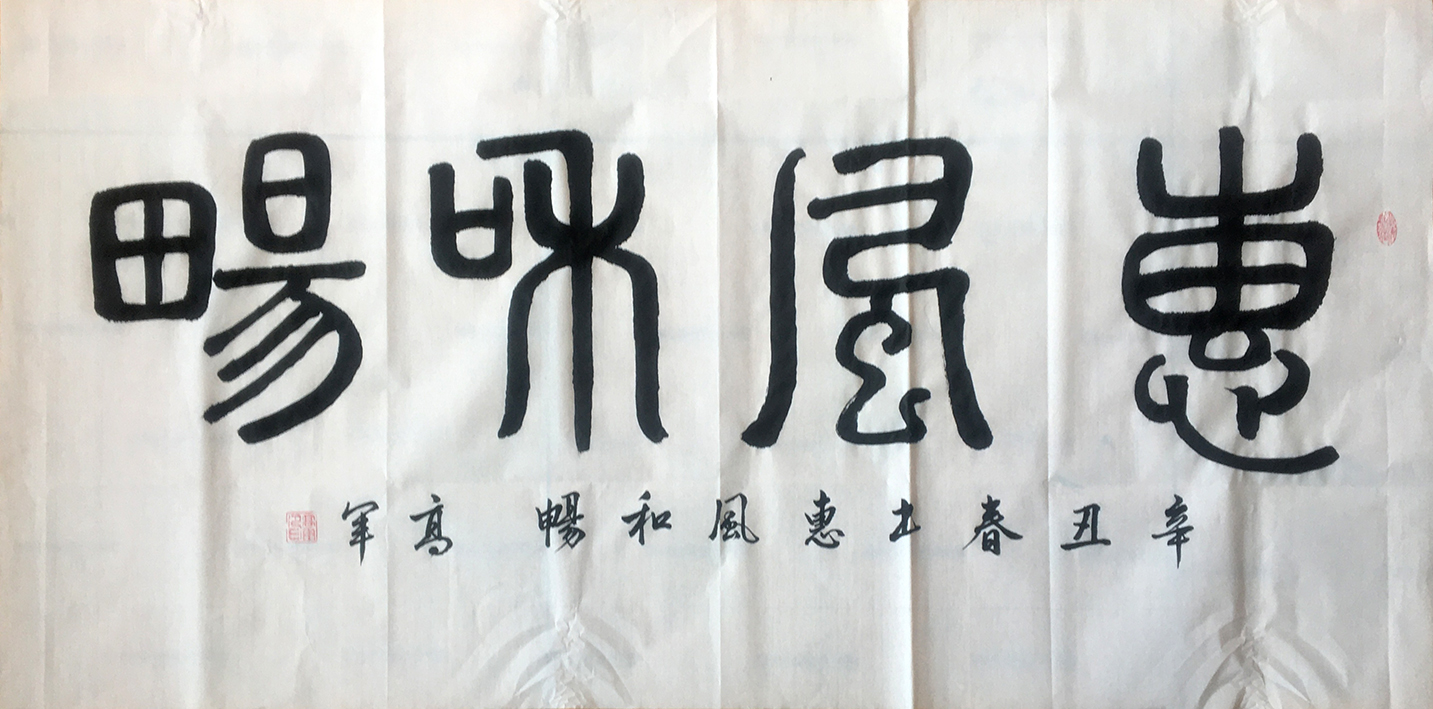 惠風和暢
辛丑春书惠風和暢 高军